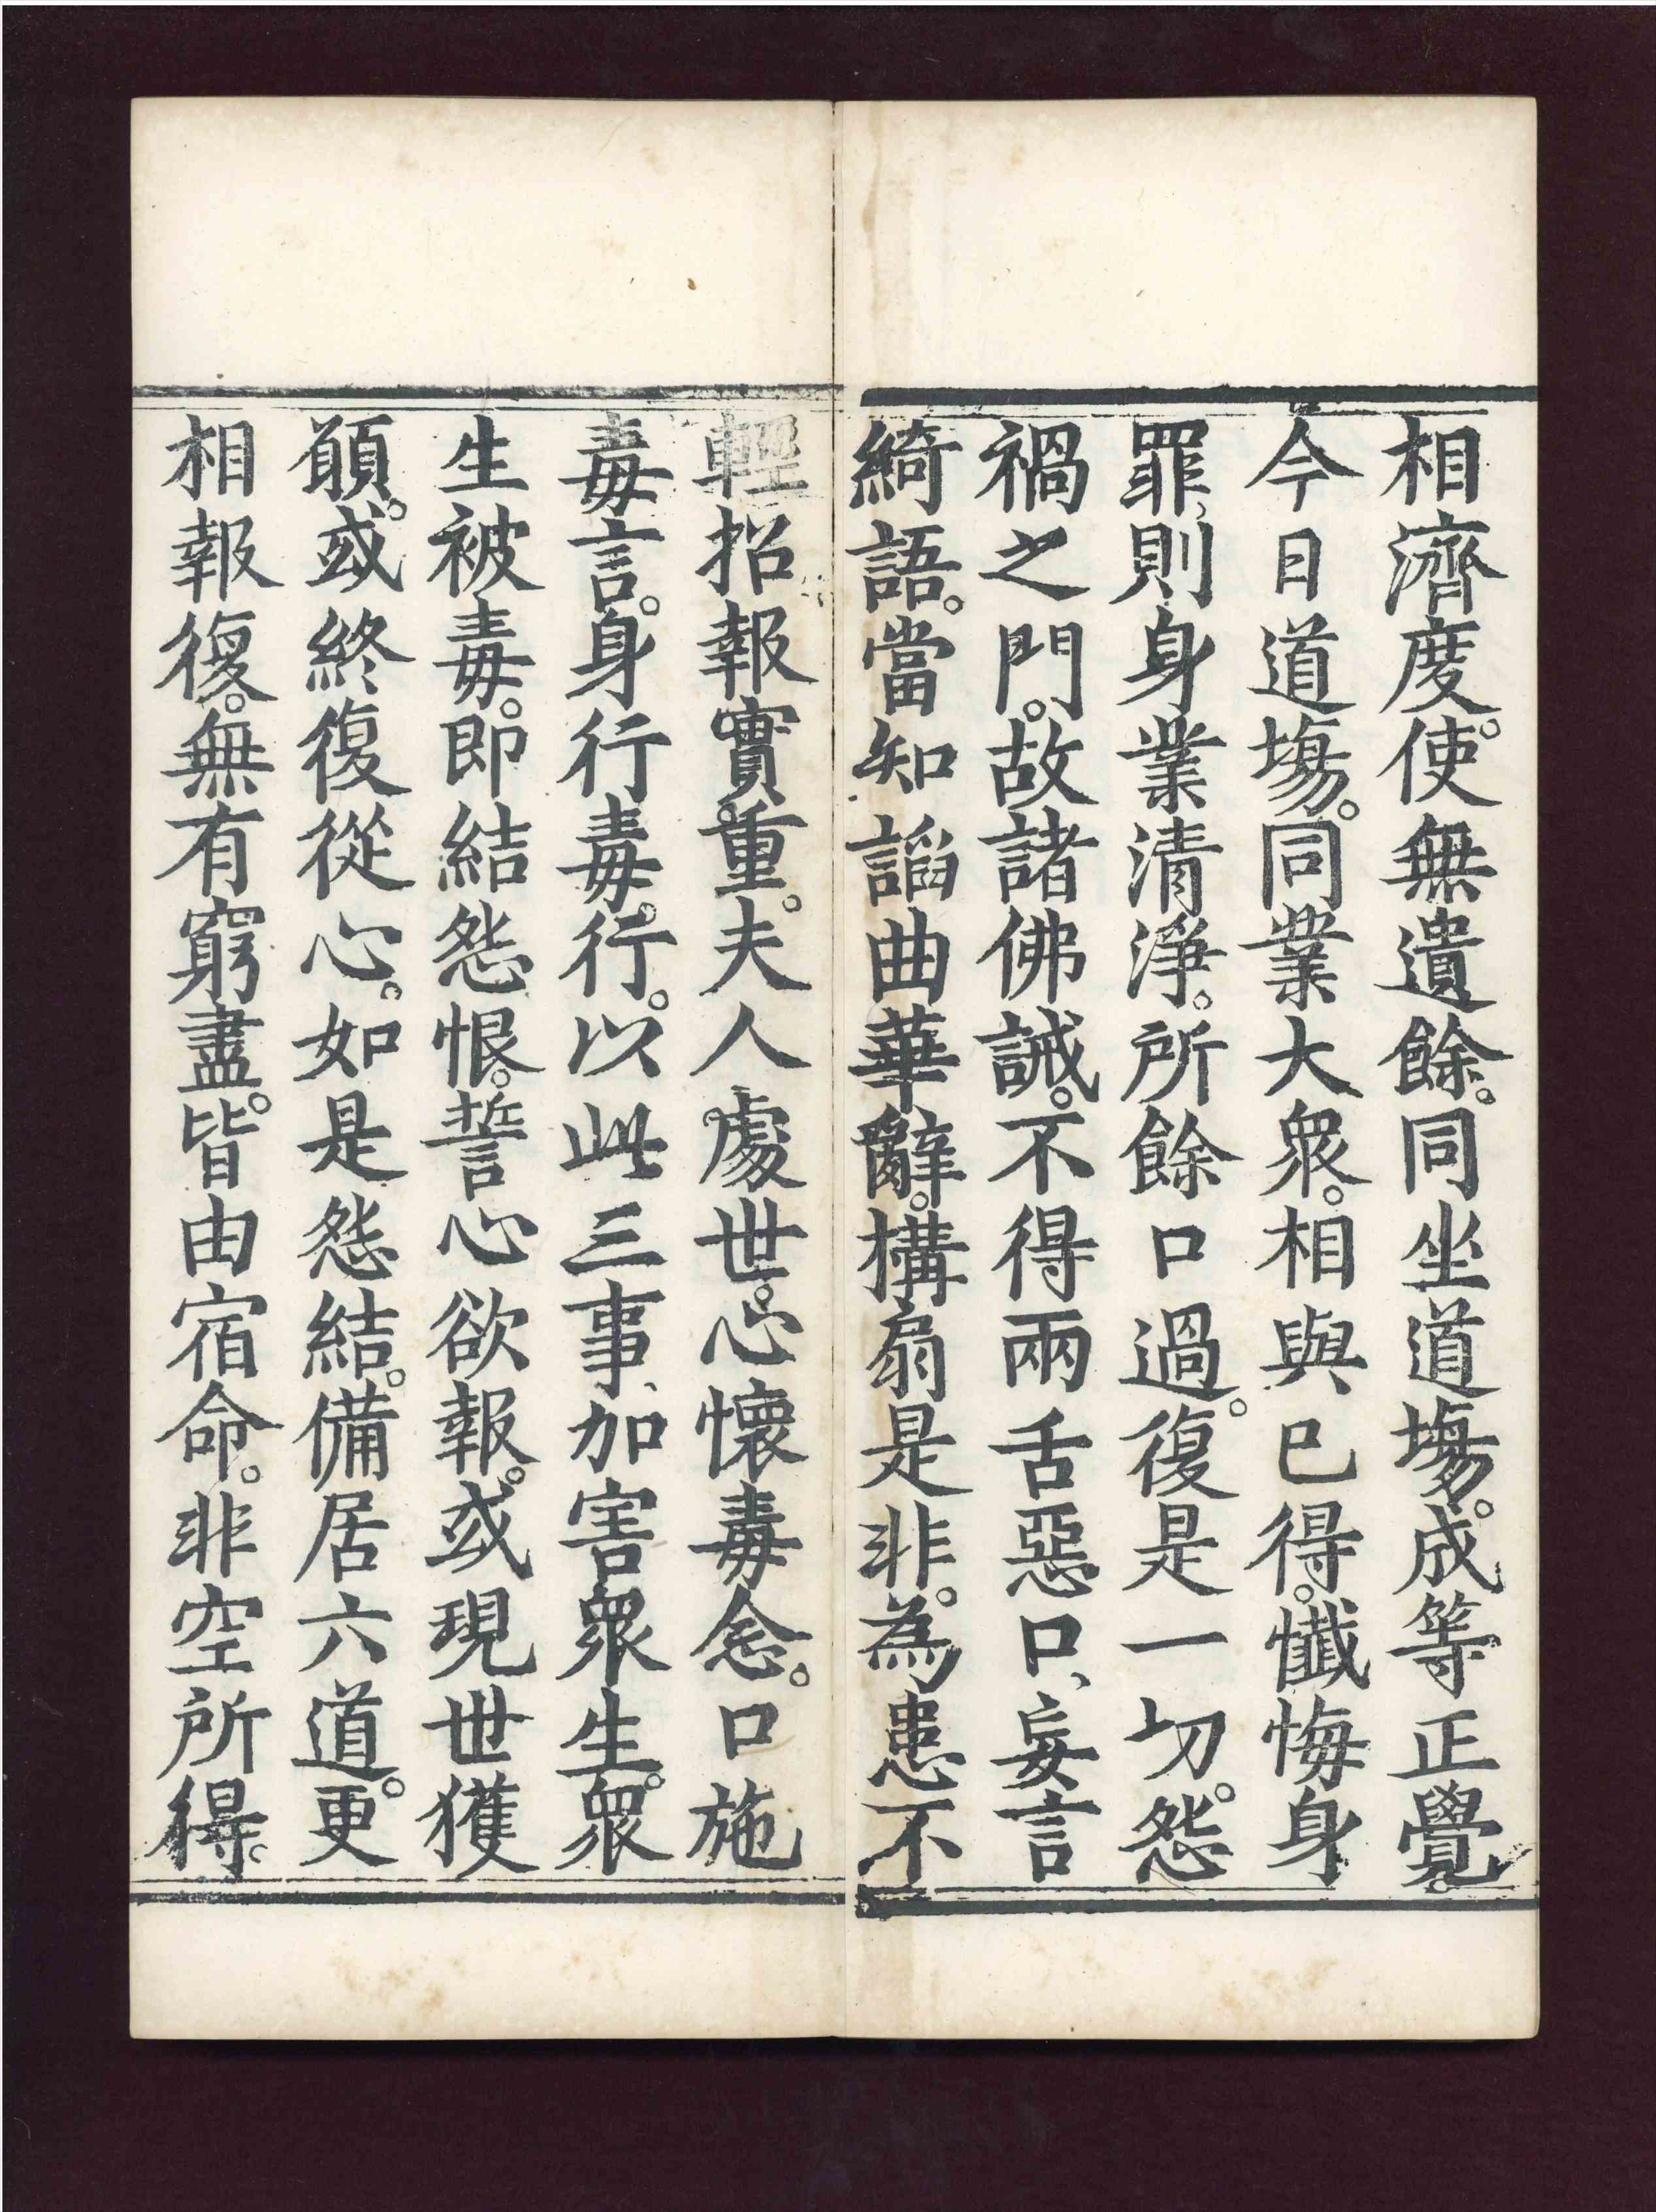 相濟度。使無遺餘。同坐道塲。成等正覺。
今日道塲。同業大衆。相與已得。懺悔身
罪、則身業清淨。所餘口過。復是一切。怨
禍之門。故諸佛誡。不得兩舌惡口、妄言
綺語。當知謟曲華辭。構扇是非。為患不
輕招報實重。夫人處世。心懷毒念。口施
毒言。身行毒行。以此三事、加害衆生。衆
生被毒。即結怨恨。誓心欲報。或現世獲
願。或終復從心。如是怨結。備居六道。更
相報復。無有窮盡。皆由宿命。非空所得。